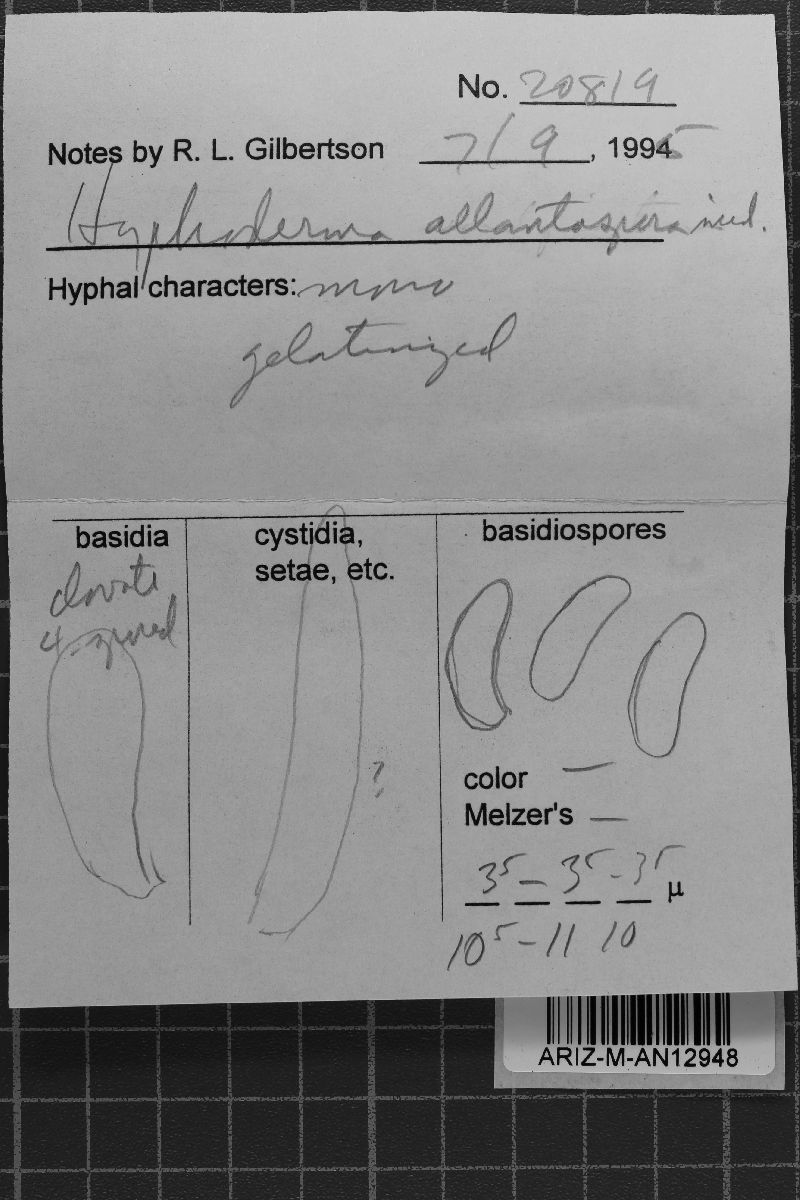 No. 20819
Notes by R. L. Gilbertson 7/9, 1995
Hyphoderma allantospora ined.
Hyphal characters: mono
gelatinized
basidia
clavate
4-spored
cystidia,
setae, etc.
?
basidiospores
color —
Melzer's —
3⁵ – 3⁵ - 3⁵ µ
10⁵ – 11 10
ARIZ-M-AN12948